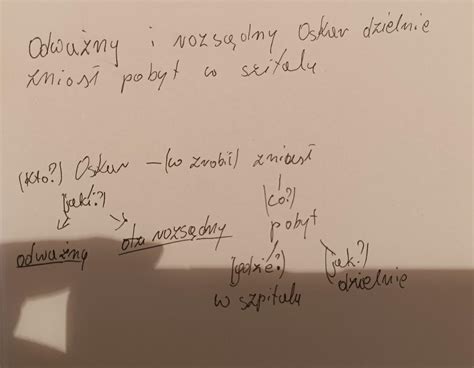 Odważny i rozsądny Oskar dzielnie
zniósł pobyt w szitalu
(Kto?) Oskar – (co zrobił) zniósł
(jaki?) (co?)
odważny rozsądny pobyt
(gdzie?) (jak?)
w szpitalu dzielnie